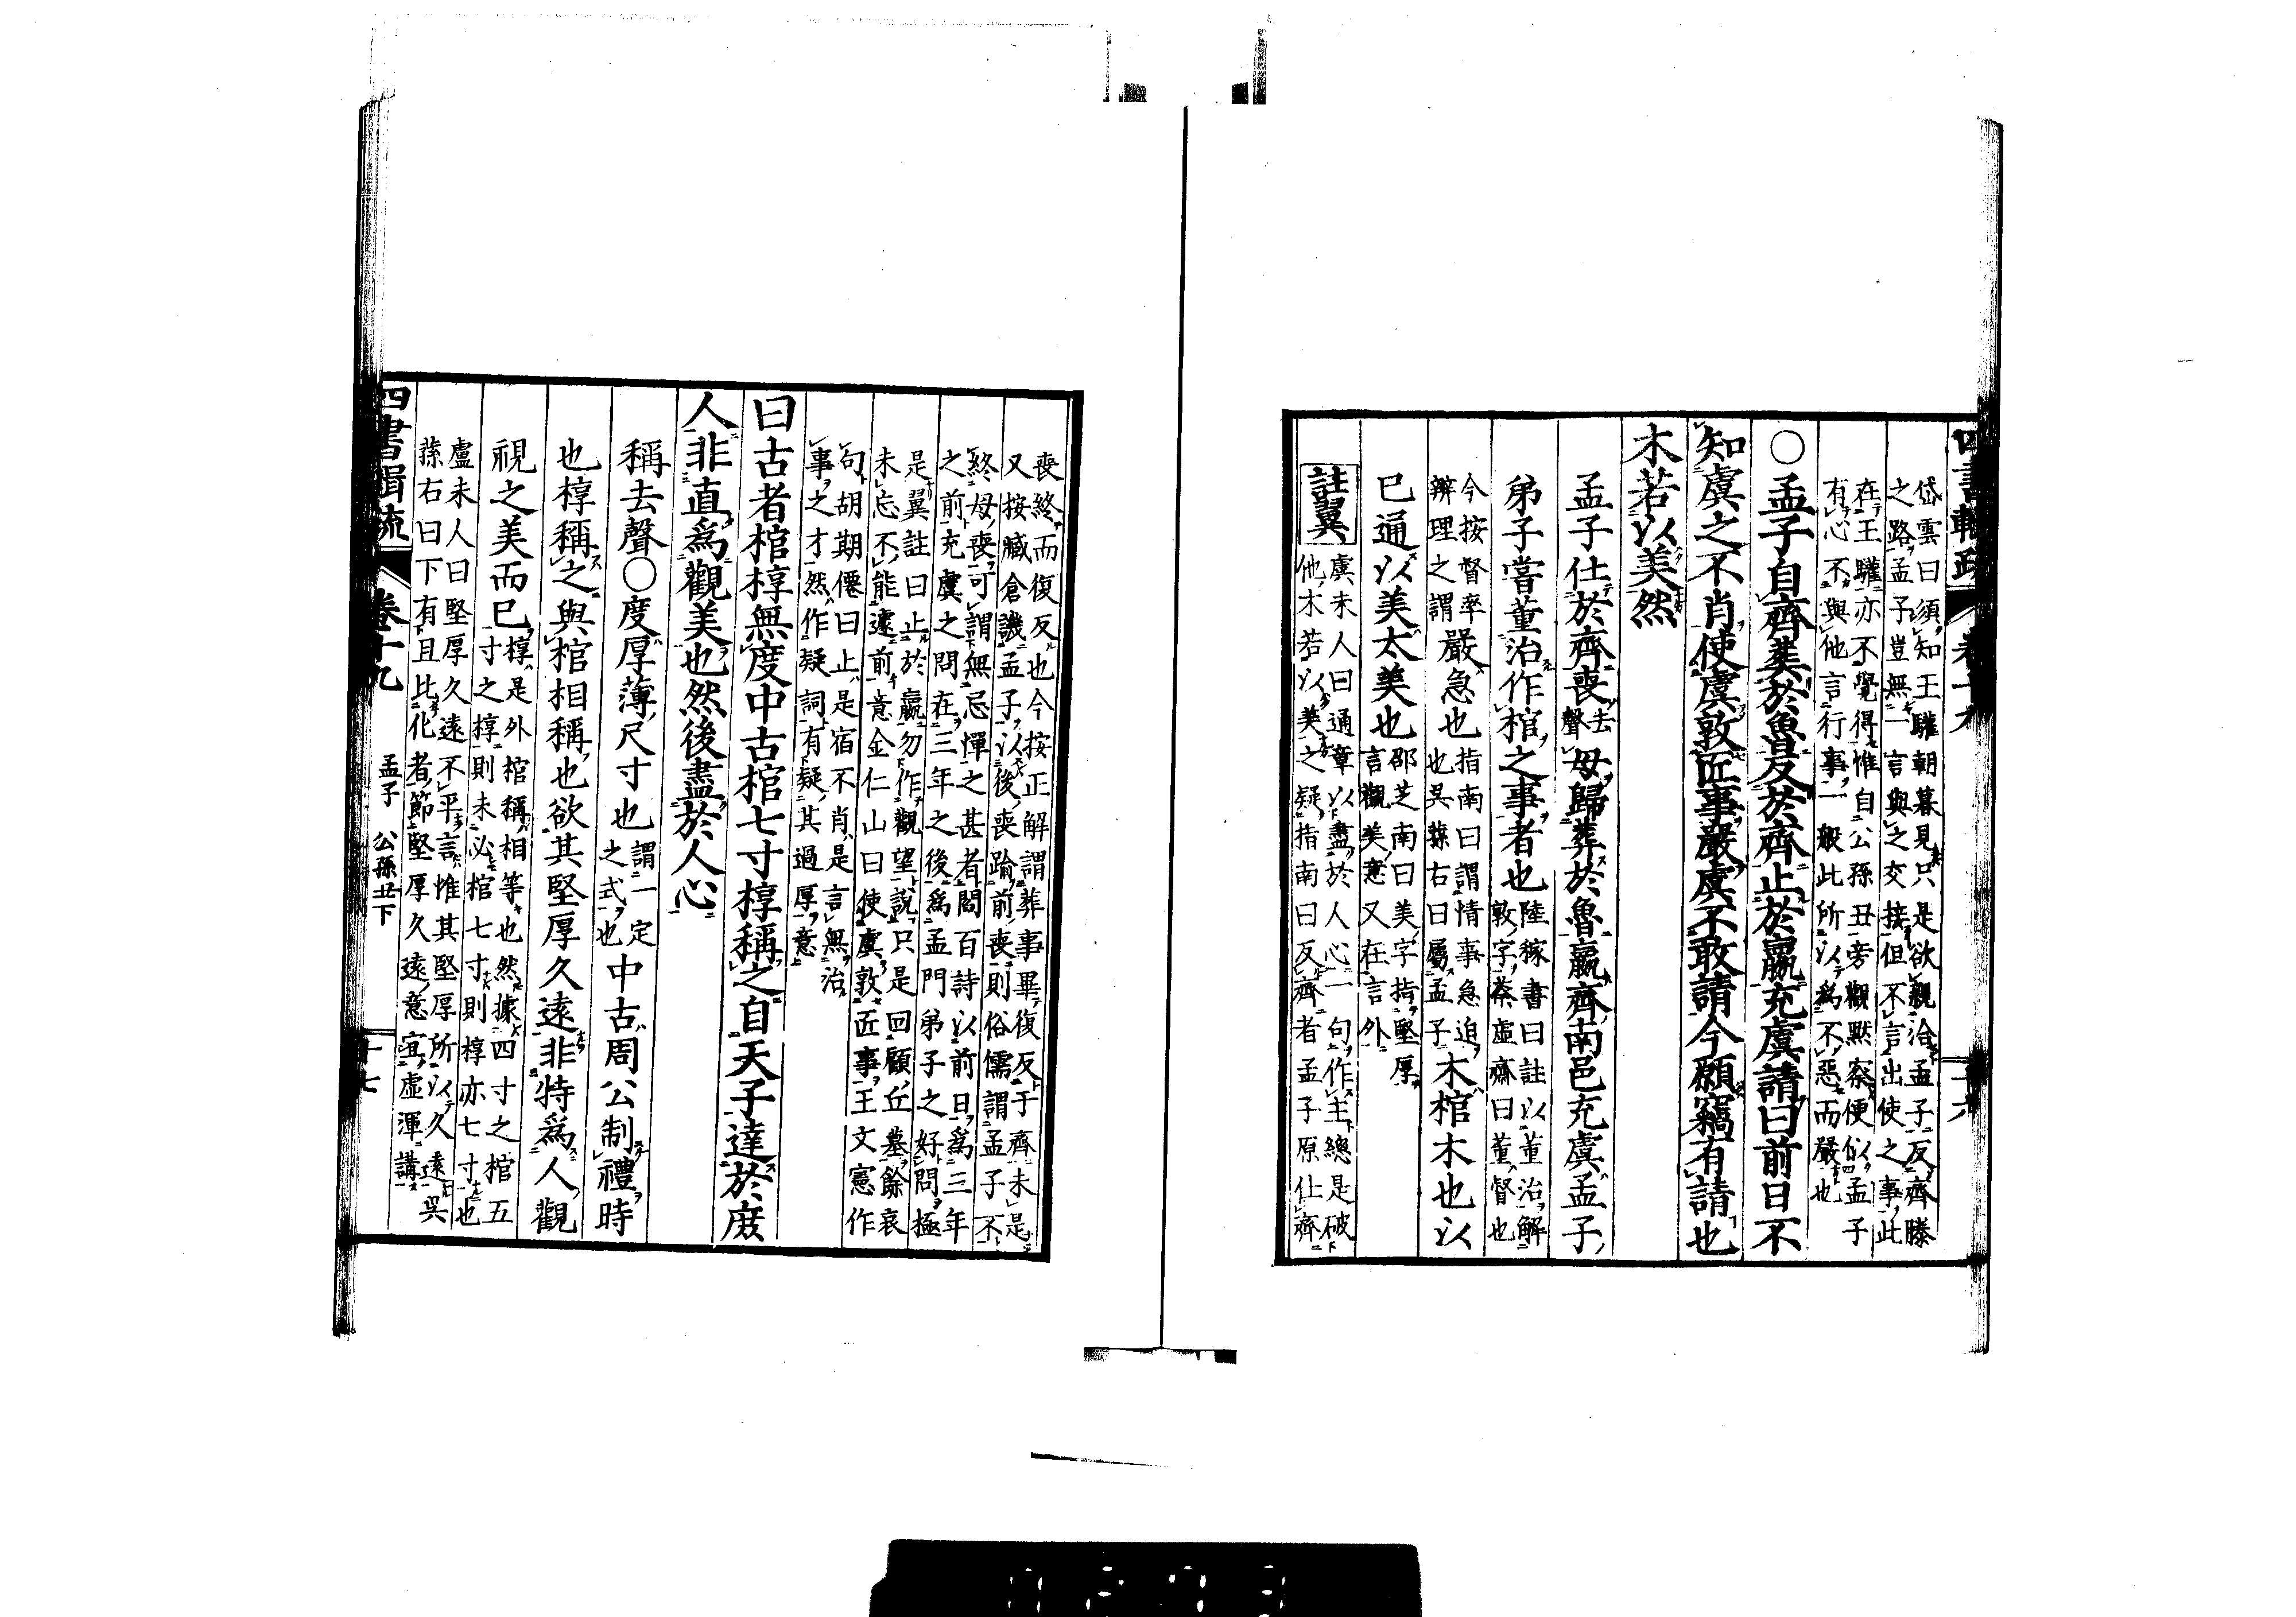 四書輯疏 卷十九 二十六
岱雲曰須知王驩朝暮見只是欲親洽孟子反齊滕
之路孟子豈無一言與之交接但不言出使之事此
在王驩亦不覺得惟自公孫丑旁觀默察便似孟子
有心不與他言行事一般此所以爲不惡而嚴也
○孟子自齊葬於魯反於齊止於嬴充虞請曰前日不
知虞之不肖使虞敦匠事嚴虞不敢請今願竊有請也
木若以美然
孟子仕於齊喪去聲母歸葬於魯嬴齊南邑充虞孟子
弟子嘗董治作棺之事者也陸稼書曰註以董治解
敦字蔡虛齋曰董督也
今按督率
辦理之謂嚴急也指南曰謂情事急迫
也吳蓀右曰屬孟子木棺木也以
已通以美太美也邵芝南曰美字指堅厚
言觀美意又在言外
註翼 虞未人曰通章以盡於人心一句作主總是破
他木若以美之疑指南曰反齊者孟子原仕齊
喪終而復反也今按正解謂葬事畢復反于齊未是
又按臧倉譏孟子以後喪踰前喪則俗儒謂孟子不
終母喪可謂無忌憚之甚者閻百詩以前日爲三年
之前充虞之問在三年之後爲孟門弟子之好問極
是翼註曰止於嬴勿作觀望說只是回顧丘墓餘哀
未忘不能遽前意金仁山曰使虞敦匠事王文憲作
句胡期僊曰止是宿不肖是言無治
事之才然作疑詞有疑其過厚意
曰古者棺椁無度中古棺七寸椁稱之自天子達於庶
人非直爲觀美也然後盡於人心
稱去聲○度厚薄尺寸也謂一定
之式也中古周公制禮時
也椁稱之與棺相稱也欲其堅厚久遠非特爲人觀
視之美而已椁是外棺稱相等也然據四寸之棺五
寸之椁則未必棺七寸則椁亦七寸也
盧未人曰堅厚久遠不平言惟其堅厚所以久遠吳
蓀右曰下有且比化者節堅厚久遠意宜虛渾講
四書輯疏 卷十九 孟子 公孫丑下 二十七